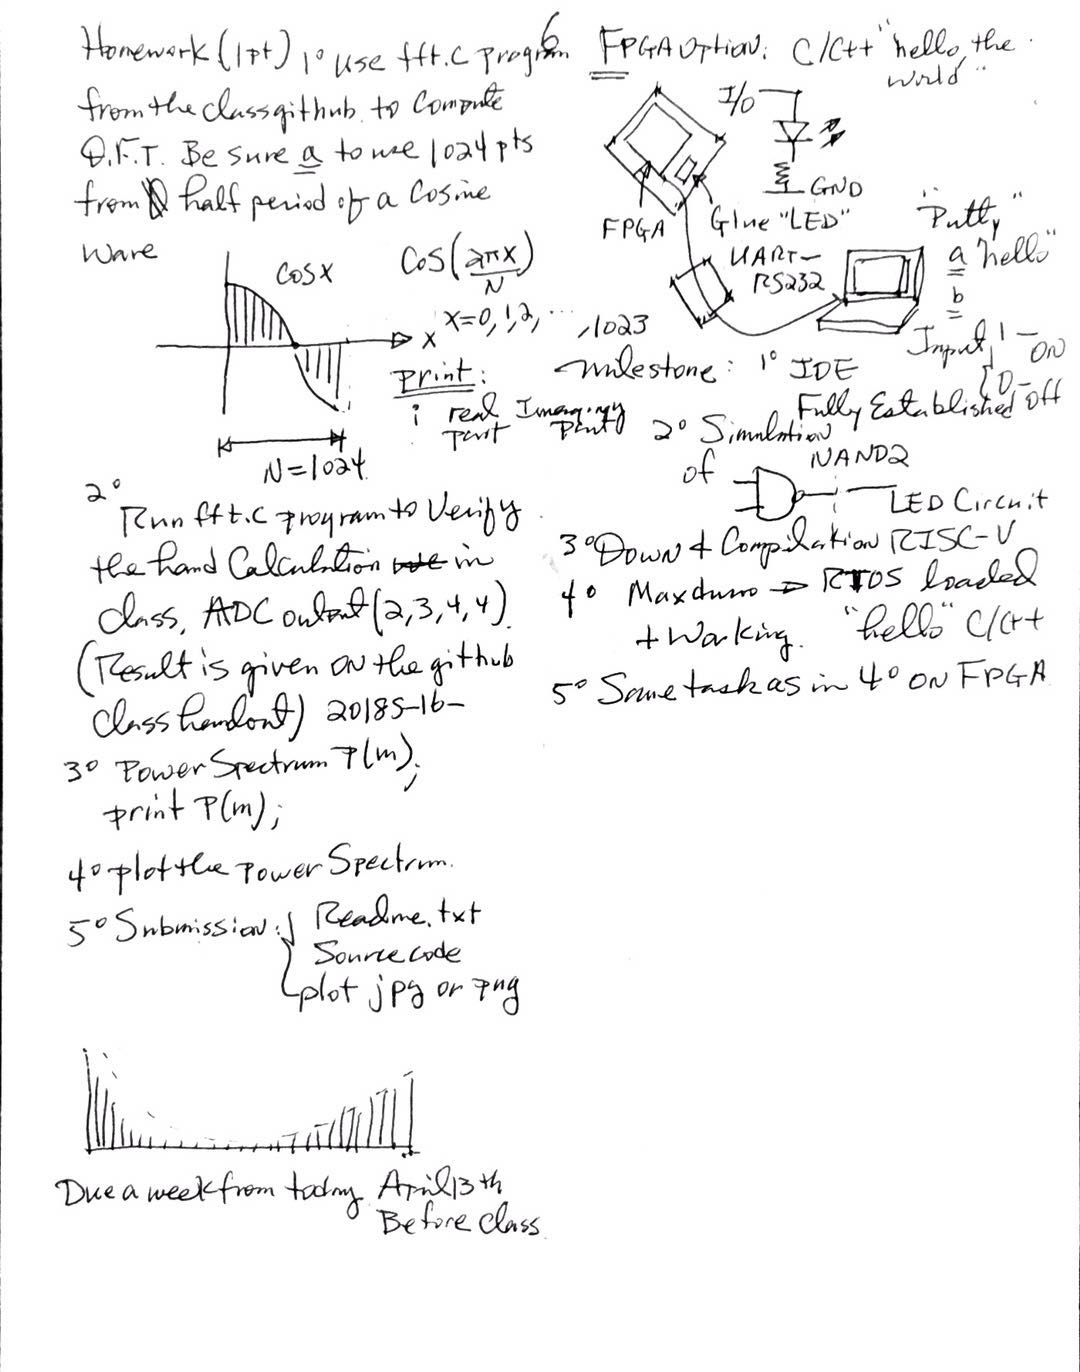 Homework (1pt) 1° Use fft.c program
from the class github to Compute
D.F.T. Be sure a to use 1024 pts
from half period of a Cosine
Wave
Cosx
Cos(2πx/N)
x
x=0,1,2, ... ,1023
Print:
i real Imaginary
part part
N=1024
2°
Run fft.c program to Verify
the hand Calculation in
Class, ADC output (2,3,4,4).
(Result is given ON the github
Class handout) 2018S-16-
3° Power Spectrum P(m);
print P(m);
4° plot the Power Spectrum.
5° Submission: Readme.txt
Source code
plot jpg or png
Due a week from today April 13th
Before Class.
6
FPGA Option: C/C++ "hello, the
world"
I/O
GND
FPGA
Glue "LED"
UART-
RS232
"Putty"
a "hello"
b
Input 1 - ON
0 - Off
Milestone: 1° IDE
Fully Established
2° Simulation
of NAND2
LED Circuit
3° Down & Compilation RISC-V
4° RTOS loaded
+ Working. "hello" C/C++
5° Same task as in 4° ON FPGA